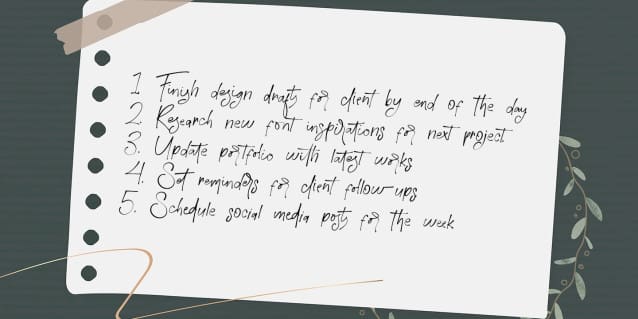 1 Finish design drafts for client by end of the day
2. Research new font inspirations for next project
3. Update portfolio with latest works
4. Set reminders for client follow-ups
5. Schedule social media posts for the week